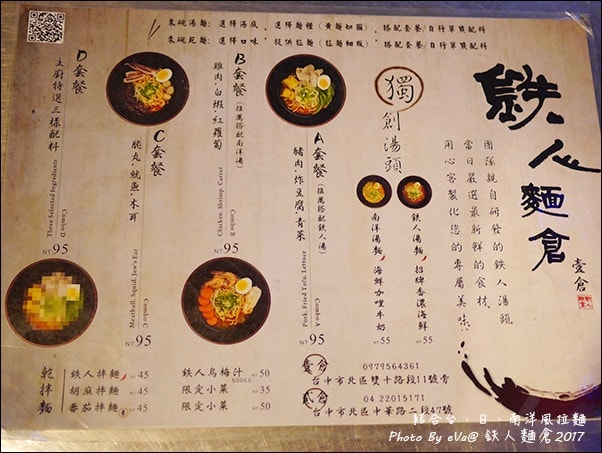 鐵人麵倉
壹倉
來碗湯麵：選擇湯底、選擇麵種(黃麵如圖)、搭配套餐/自行單點配料
來碗乾麵：選擇口味、提供拉麵(拉麵細版)、搭配套餐/自行單點配料
團隊親自研發的鐵人湯頭
當日嚴選最新鮮的食材，
用心客製化您的專屬美味。
獨創湯頭
鐵人湯麵
招牌香濃海鮮
NT 55
南洋湯麵
海鮮咖哩牛奶
NT 55
A套餐(推薦搭配鐵人湯)
豬肉·炸豆腐·青菜
Combo A
Pork, Fried Tofu, Lettuce
NT 95
B套餐(推薦搭配南洋湯)
雞肉·白蝦·紅蘿蔔
Combo B
Chicken, Shrimp, Carrot
NT 95
C套餐
脆丸·魷魚·木耳
Combo C
Meatball, Squid, Jew's Ear
NT 95
D套餐
主廚特選三樣配料
Combo D
Three Selected Ingredients
NT 95
乾拌麵
鐵人拌麵 NT 45
胡麻拌麵 NT 45
番茄拌麵 NT 45
鐵人烏梅汁 500CC NT 50
限定小菜 NT 35
限定小菜 NT 50
壹倉 0979564361
台中市北區雙十路段11號旁
貳倉 04 22015171
台中市北區中華路二段47號
結合台·日·南洋風拉麵
Photo By eVa@ 鐵人麵倉2017